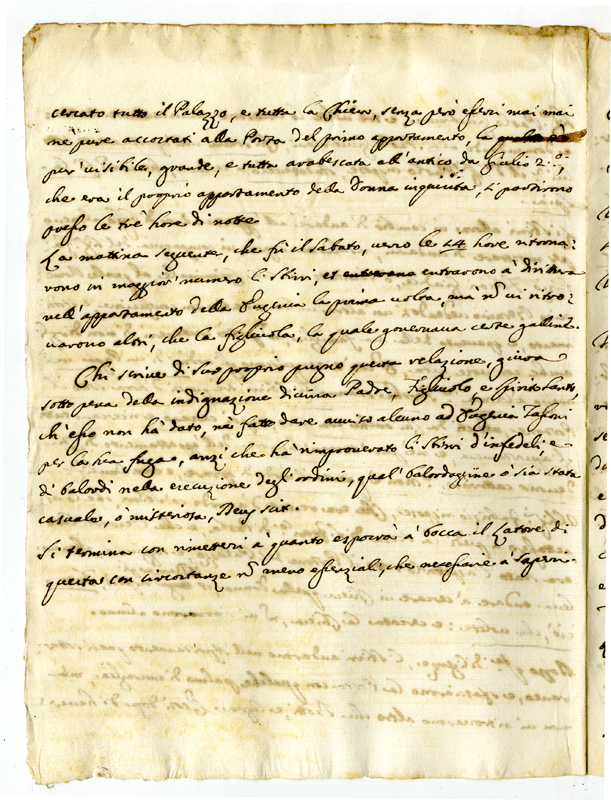 cercato tutto il Palazzo, e tutta la Chiesa, senza però essersi mai mai
ne pure accostati alla Porta del primo appartamento, la
pur' visibile, grande, e tutta arabescata all'antico da Giulio 2.º,
che era il proprio appartamento della Donna inquisita, si partirono
presso le trè hore di notte
La mattina seguente, che fù il Sabato, verso le 14 hore ritorna:
rono in maggior numero li Sbirri, entrarono à dirittura
nell'appartamento della Eugenia la prima volta, mà nõ vi ritro:
uarono altri, che la figliuola, la quale gouernaua certe galline.
Chi scriue di suo proprio pugno questa relazione, giura
sotto pena della indignazione diuina Padre, Figliuolo e Spirito Santo,
ch'esso non hà dato, nè fatto dare auuiso alcuno ad Eugenia
per la sua fuga, anzi che hà rimprouerato li Sbirri d'infedeli, e
di balordi nella esecuzione degli ordini, qual' balordaggine ò sia stata
casuale, ò misteriosa, Deus scit.
Si termina con rimettersi à quanto esporrà à bocca il Latore di
questa con circostanze nõ meno essenziali, che necessarie à sapersi.